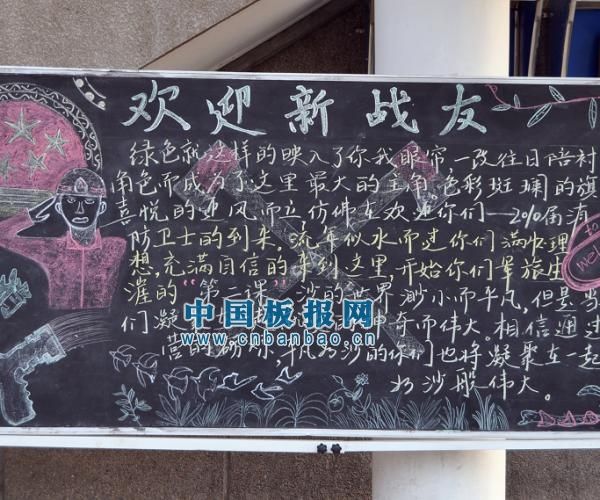 欢迎新战友
绿色就这样的映入了你我眼帘一改往日陪衬
角色而成为了这里最大的主角色彩斑斓的旗
喜悦的迎风而立仿佛在欢迎你们——2010届消
防卫士的到来。流年似水而过你们满怀理
想,充满自信的来到这里,开始你们军旅生
涯的"第二课"沙的世界渺小而平凡,但是当
们凝 奇而伟大。相信通过
营的 沙的你们也将凝聚在一起
如沙般伟大。
中国板报网
www.cnbanbao.cn